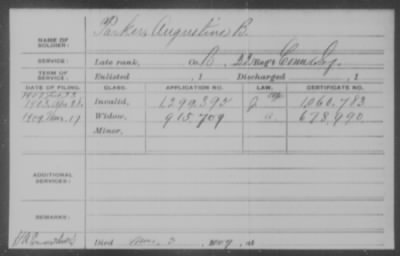 NAME OF SOLDIER: Parker, Augustine B.
SERVICE: Late rank, Co. B, 22 Reg't Conn. Inf.
TERM OF SERVICE: Enlisted , 1 Discharged , 1
DATE OF FILING. CLASS. APPLICATION NO. LAW. CERTIFICATE NO.
Invalid, 1.299.392 1.060.783
1909 Mar. 17 Widow, 915.709 678.990
Minor,
ADDITIONAL SERVICES:
REMARKS:
Died 3, 1909, at